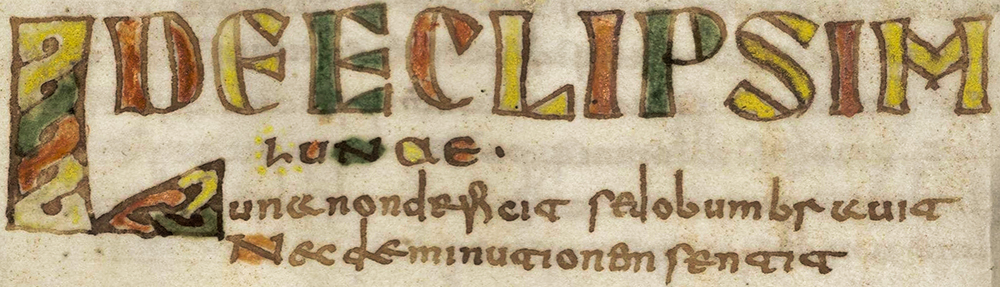 DE ECLIPSIM
LUNAE.
Luna non deficit sed obumbrauit
Nec deminutionem sentit